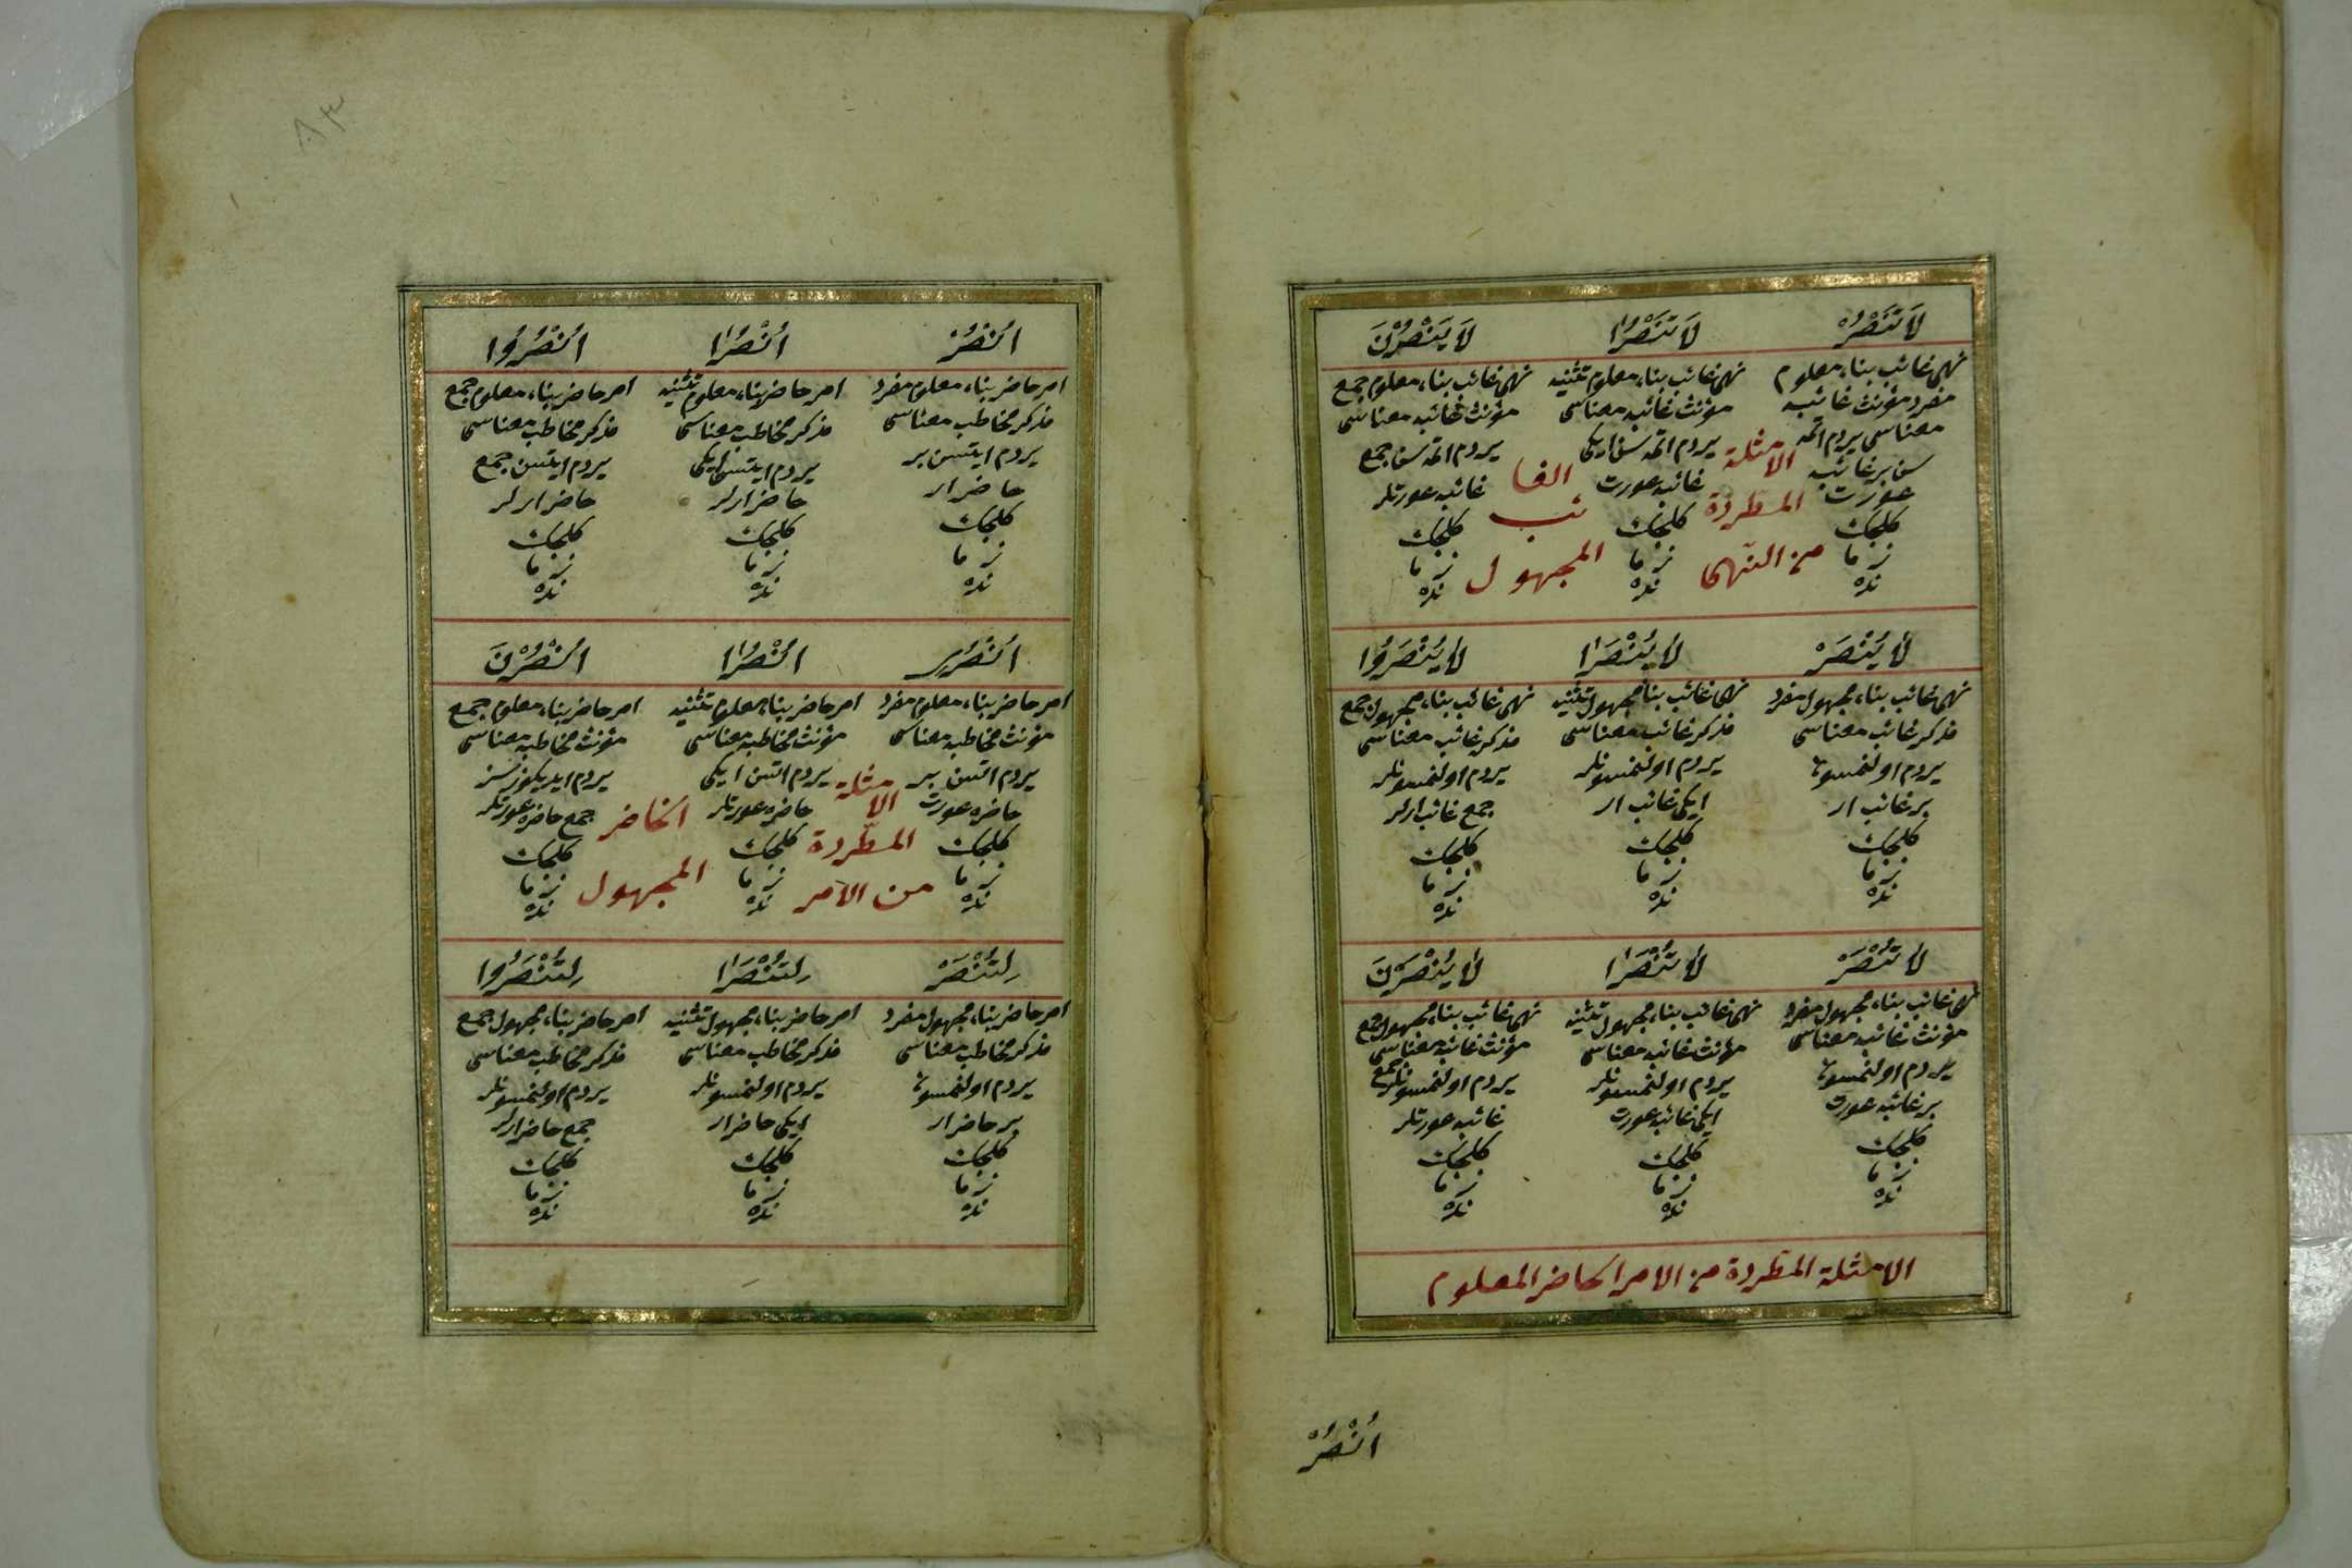 لَا تَنْصُرْ
لَا تَنْصُرَا
لَا يَنْصُرْنَ
نهى غائب بناء معلوم
مفرد مؤنث غائبه
معناسى يردم اتمه
سن بر غائبه
عورت
كلجك
زما
نده
نهى غائب بناء معلوم تثنيه
مؤنث غائبه معناسى
يردم اتمه سن ايكى
غائبه عورت
كلجك
زما
نده
نهى غائب بناء معلوم جمع
مؤنث غائبه معناسى
يردم اتمه سن جمع
غائبه عورتلر
كلجك
زما
نده
الامثلة
المطردة
من النهى
الغا
ئب
المجهول
لَا يُنْصَرْ
لَا يُنْصَرَا
لَا يُنْصَرُوا
نهى غائب بناء مجهول مفرد
مذكر غائب معناسى
يردم اولنمسون
بر غائب ار
كلجك
زما
نده
نهى غائب بناء مجهول تثنيه
مذكر غائب معناسى
يردم اولنمسونلر
ايكى غائب ار
كلجك
زما
نده
نهى غائب بناء مجهول جمع
مذكر غائب معناسى
يردم اولنمسونلر
جمع غائب ارلر
كلجك
زما
نده
لَا تُنْصَرْ
لَا تُنْصَرَا
لَا يُنْصَرْنَ
نهى غائب بناء مجهول مفرد
مؤنث غائبه معناسى
يردم اولنمسون
بر غائبه عورت
كلجك
زما
نده
نهى غائب بناء مجهول تثنيه
مؤنث غائبه معناسى
يردم اولنمسونلر
ايكى غائبه عورت
كلجك
زما
نده
نهى غائب بناء مجهول جمع
مؤنث غائبه معناسى
يردم اولنمسونلر جمع
غائبه عورتلر
كلجك
زما
نده
الامثلة المطردة من الامر الحاضر المعلوم
اُنْصُرْ
٨٣
اُنْصُرْ
اُنْصُرَا
اُنْصُرُوا
امر حاضر بناء معلوم مفرد
مذكر مخاطب معناسى
يردم ايتسن بر
حاضر ار
كلجك
زما
نده
امر حاضر بناء معلوم تثنيه
مذكر مخاطب معناسى
يردم ايتسن ايكى
حاضر ارلر
كلجك
زما
نده
امر حاضر بناء معلوم جمع
مذكر مخاطب معناسى
يردم ايتسن جمع
حاضر ارلر
كلجك
زما
نده
اُنْصُرِى
اُنْصُرَا
اُنْصُرْنَ
امر حاضر بناء معلوم مفرد
مؤنث مخاطبه معناسى
يردم اتسن بر
حاضره عورت
كلجك
زما
نده
امر حاضر بناء معلوم تثنيه
مؤنث مخاطبه معناسى
يردم اتسن ايكى
حاضره عورتلر
كلجك
زما
نده
امر حاضر بناء معلوم جمع
مؤنث مخاطبه معناسى
يردم ايديكوز سز
جمع حاضره عورتلر
كلجك
زما
نده
الامثلة
المطّردة
من الامر
الحاضر
المجهول
لِتُنْصَرْ
لِتُنْصَرَا
لِتُنْصَرُوا
امر حاضر بناء مجهول مفرد
مذكر مخاطب معناسى
يردم اولنمسون
بر حاضر ار
كلجك
زما
نده
امر حاضر بناء مجهول تثنيه
مذكر مخاطب معناسى
يردم اولنمسونلر
ايكى حاضر ار
كلجك
زما
نده
امر حاضر بناء مجهول جمع
مذكر مخاطب معناسى
يردم اولنمسونلر
جمع حاضر ارلر
كلجك
زما
نده